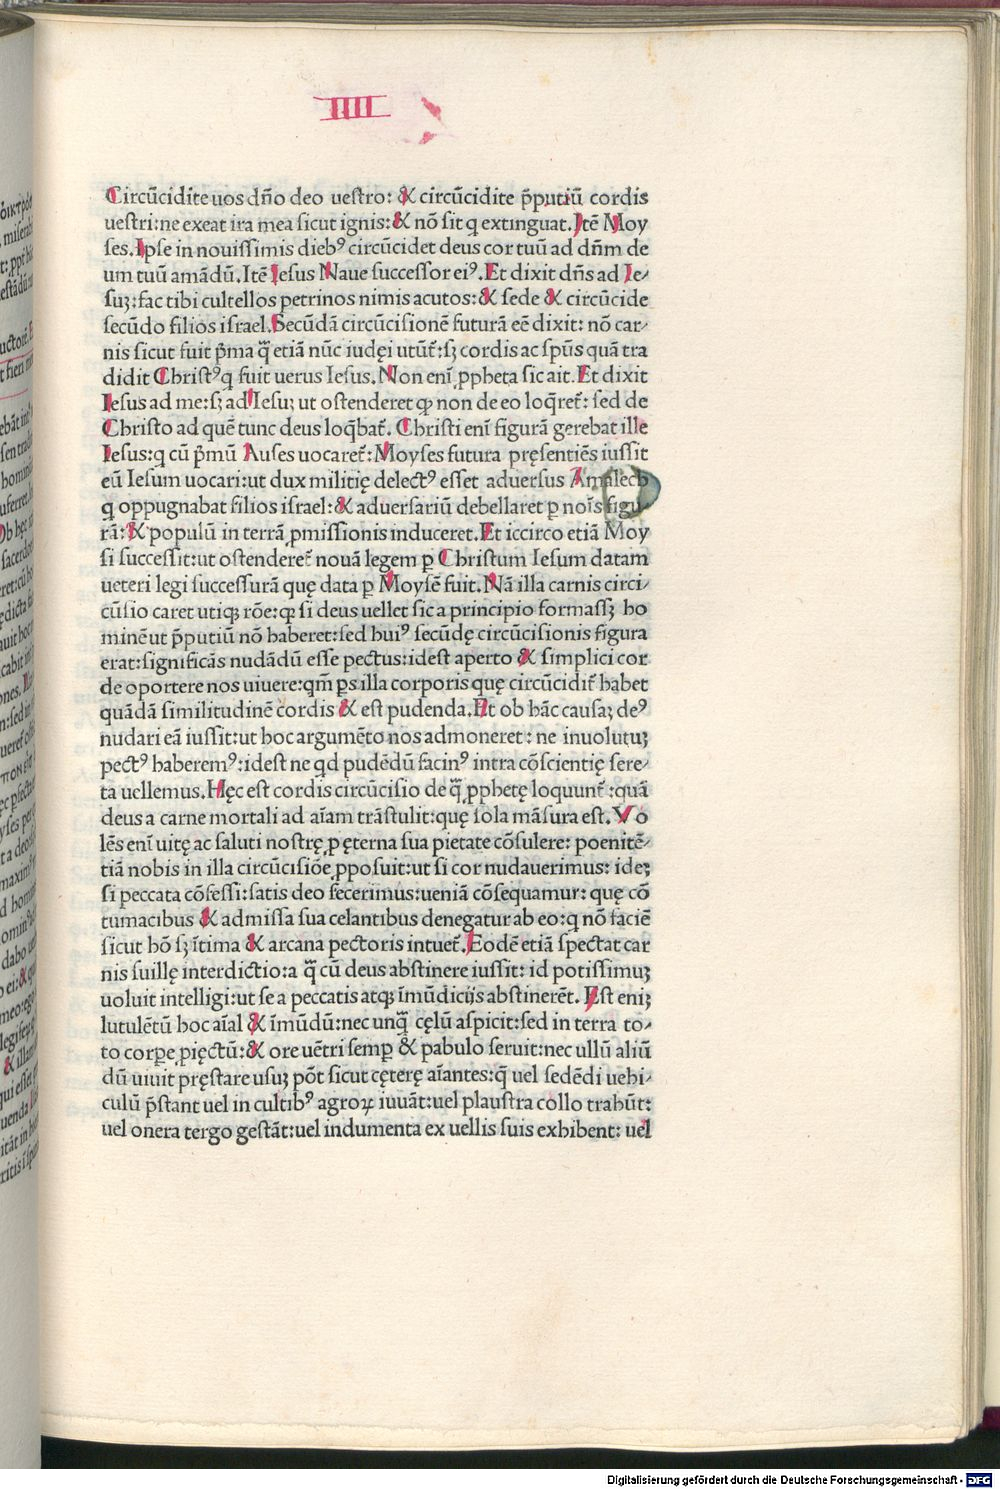 IIII
Circūcidite uos dño deo uestro: & circūcidite p̄putiū cordis
uestri: ne exeat ira mea sicut ignis: & nō sit q extinguat. Itē Moy
ses. Ipse in nouissimis diebꝰ circūcidet deus cor tuū ad dñm de
um tuū amādū. Itē Iesus Naue successor eiꝰ. Et dixit dñs ad Ie⸗
suꝫ: fac tibi cultellos petrinos nimis acutos: & sede & circūcide
secūdo filios israel. Secūdā circūcisionē futurā eē dixit: nō car⸗
nis sicut fuit p̄ma q̄ etiā nūc iudęi utūt̄: sꝫ cordis ac spūs quā tra
didit Christꝰ q fuit uerus Iesus. Non eni ꝓpheta sic ait. Et dixit
Iesus ad me: sꝫ ad Iesuꝫ ut ostenderet ꝙ non de eo loq̄ret̄: sed de
Christo ad quē tunc deus loq̄bat̄. Christi eni figurā gerebat ille
Iesus: q cū p̄mū Auses uocaret̄: Moyses futura pręsentiēs iussit
eū Iesum uocari: ut dux militię delectꝰ esset aduersus Amalech
q oppugnabat filios israel: & aduersariū debellaret ꝑ nois figu⸗
rā: & populū in terrā ꝓmissionis induceret. Et iccirco etiā Moy
si successit: ut ostenderet̄ nouā legem ꝑ Christum Iesum datam
ueteri legi successurā quę data ꝑ Moysē fuit. Nā illa carnis circi⸗
cūsio caret utiqꝫ rōe: ꝙ si deus uellet sic a principio formassꝫ ho
minē ut p̄putiū nō haberet: sed huiꝰ secūdę circūcisionis figura
erat: significās nudādū esse pectus: idest aperto & simplici cor
de oportere nos uiuere: qm̄ ꝑs illa corporis quę circūcidit̄ habet
quādā similitudinē cordis & est pudenda. Et ob hāc causaꝫ deꝰ
nudari eā iussit: ut hoc argumēto nos admoneret: ne inuolutuꝫ
pectꝰ haberemꝰ: idest ne qd pudēdū facinꝰ intra cōscientię secre⸗
ta uellemus. Hęc est cordis circūcisio de q̄ ꝓphetę loquunt̄: quā
deus a carne mortali ad aīam trāstulit: quę sola māsura est. Vo
lēs eni uitę ac saluti nostrę ꝓ ęterna sua pietate cōsulere: poenitē⸗
tiā nobis in illa circūcisiōe ꝓposuit: ut si cor nudauerimus: ideꝫ
si peccata cōfessi: satis deo fecerimus: ueniā cōsequamur: quę cō
tumacibus & admissa sua celantibus denegatur ab eo: q nō faciē
sicut hō sꝫ ītima & arcana pectoris intuet̄. Eodē etiā spectat car
nis suillę interdictio: a q̄ cū deus abstinere iussit: id potissimuꝫ
uoluit intelligi: ut se a peccatis atqꝫ īmūdiciis abstinerēt. Est eniꝫ
lutulētū hoc aīal & īmūdū: nec unq̄ cęlū aspicit: sed in terra to⸗
to corꝑe ꝓięctū: & ore uētri semꝑ & pabulo seruit: nec ullū aliū
dū uiuit pręstare usuꝫ pōt sicut cęterę aīantes: q̄ uel sedēdi uehi⸗
culū p̄stant uel in cultibꝰ agroꝝ iuuāt: uel plaustra collo trahūt:
uel onera tergo gestāt: uel indumenta ex uellis suis exhibent: uel
Digitalisierung gefördert durch die Deutsche Forschungsgemeinschaft - DFG